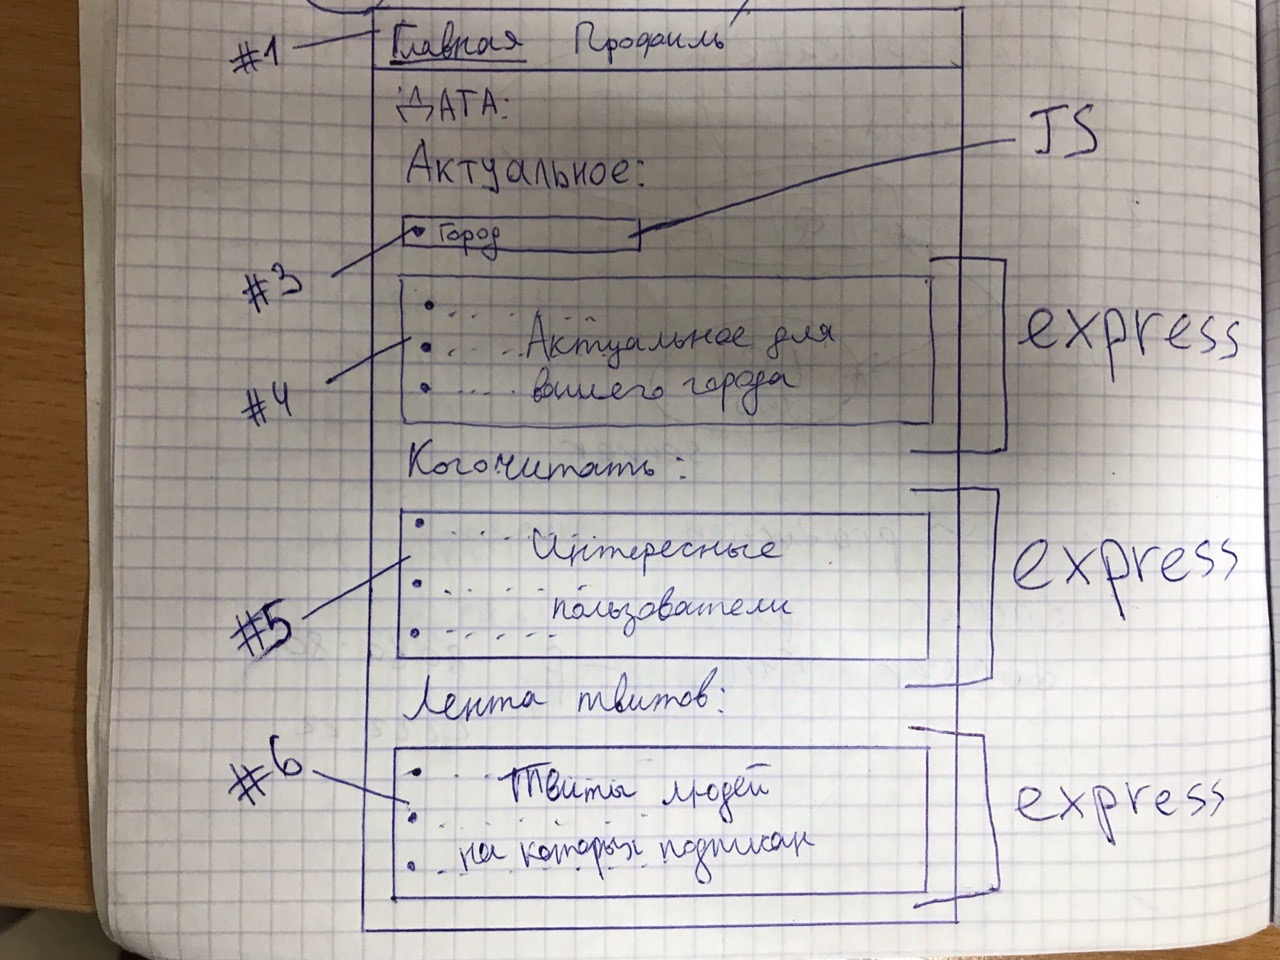 #1
Главная Профиль
ДАТА:
Актуальное:
JS
Город
#3
express
Актуальное для
вашего города
#4
Кого читать:
Интересные
пользователи
express
#5
Лента твитов:
#6
Твиты людей
на которых подписан
express